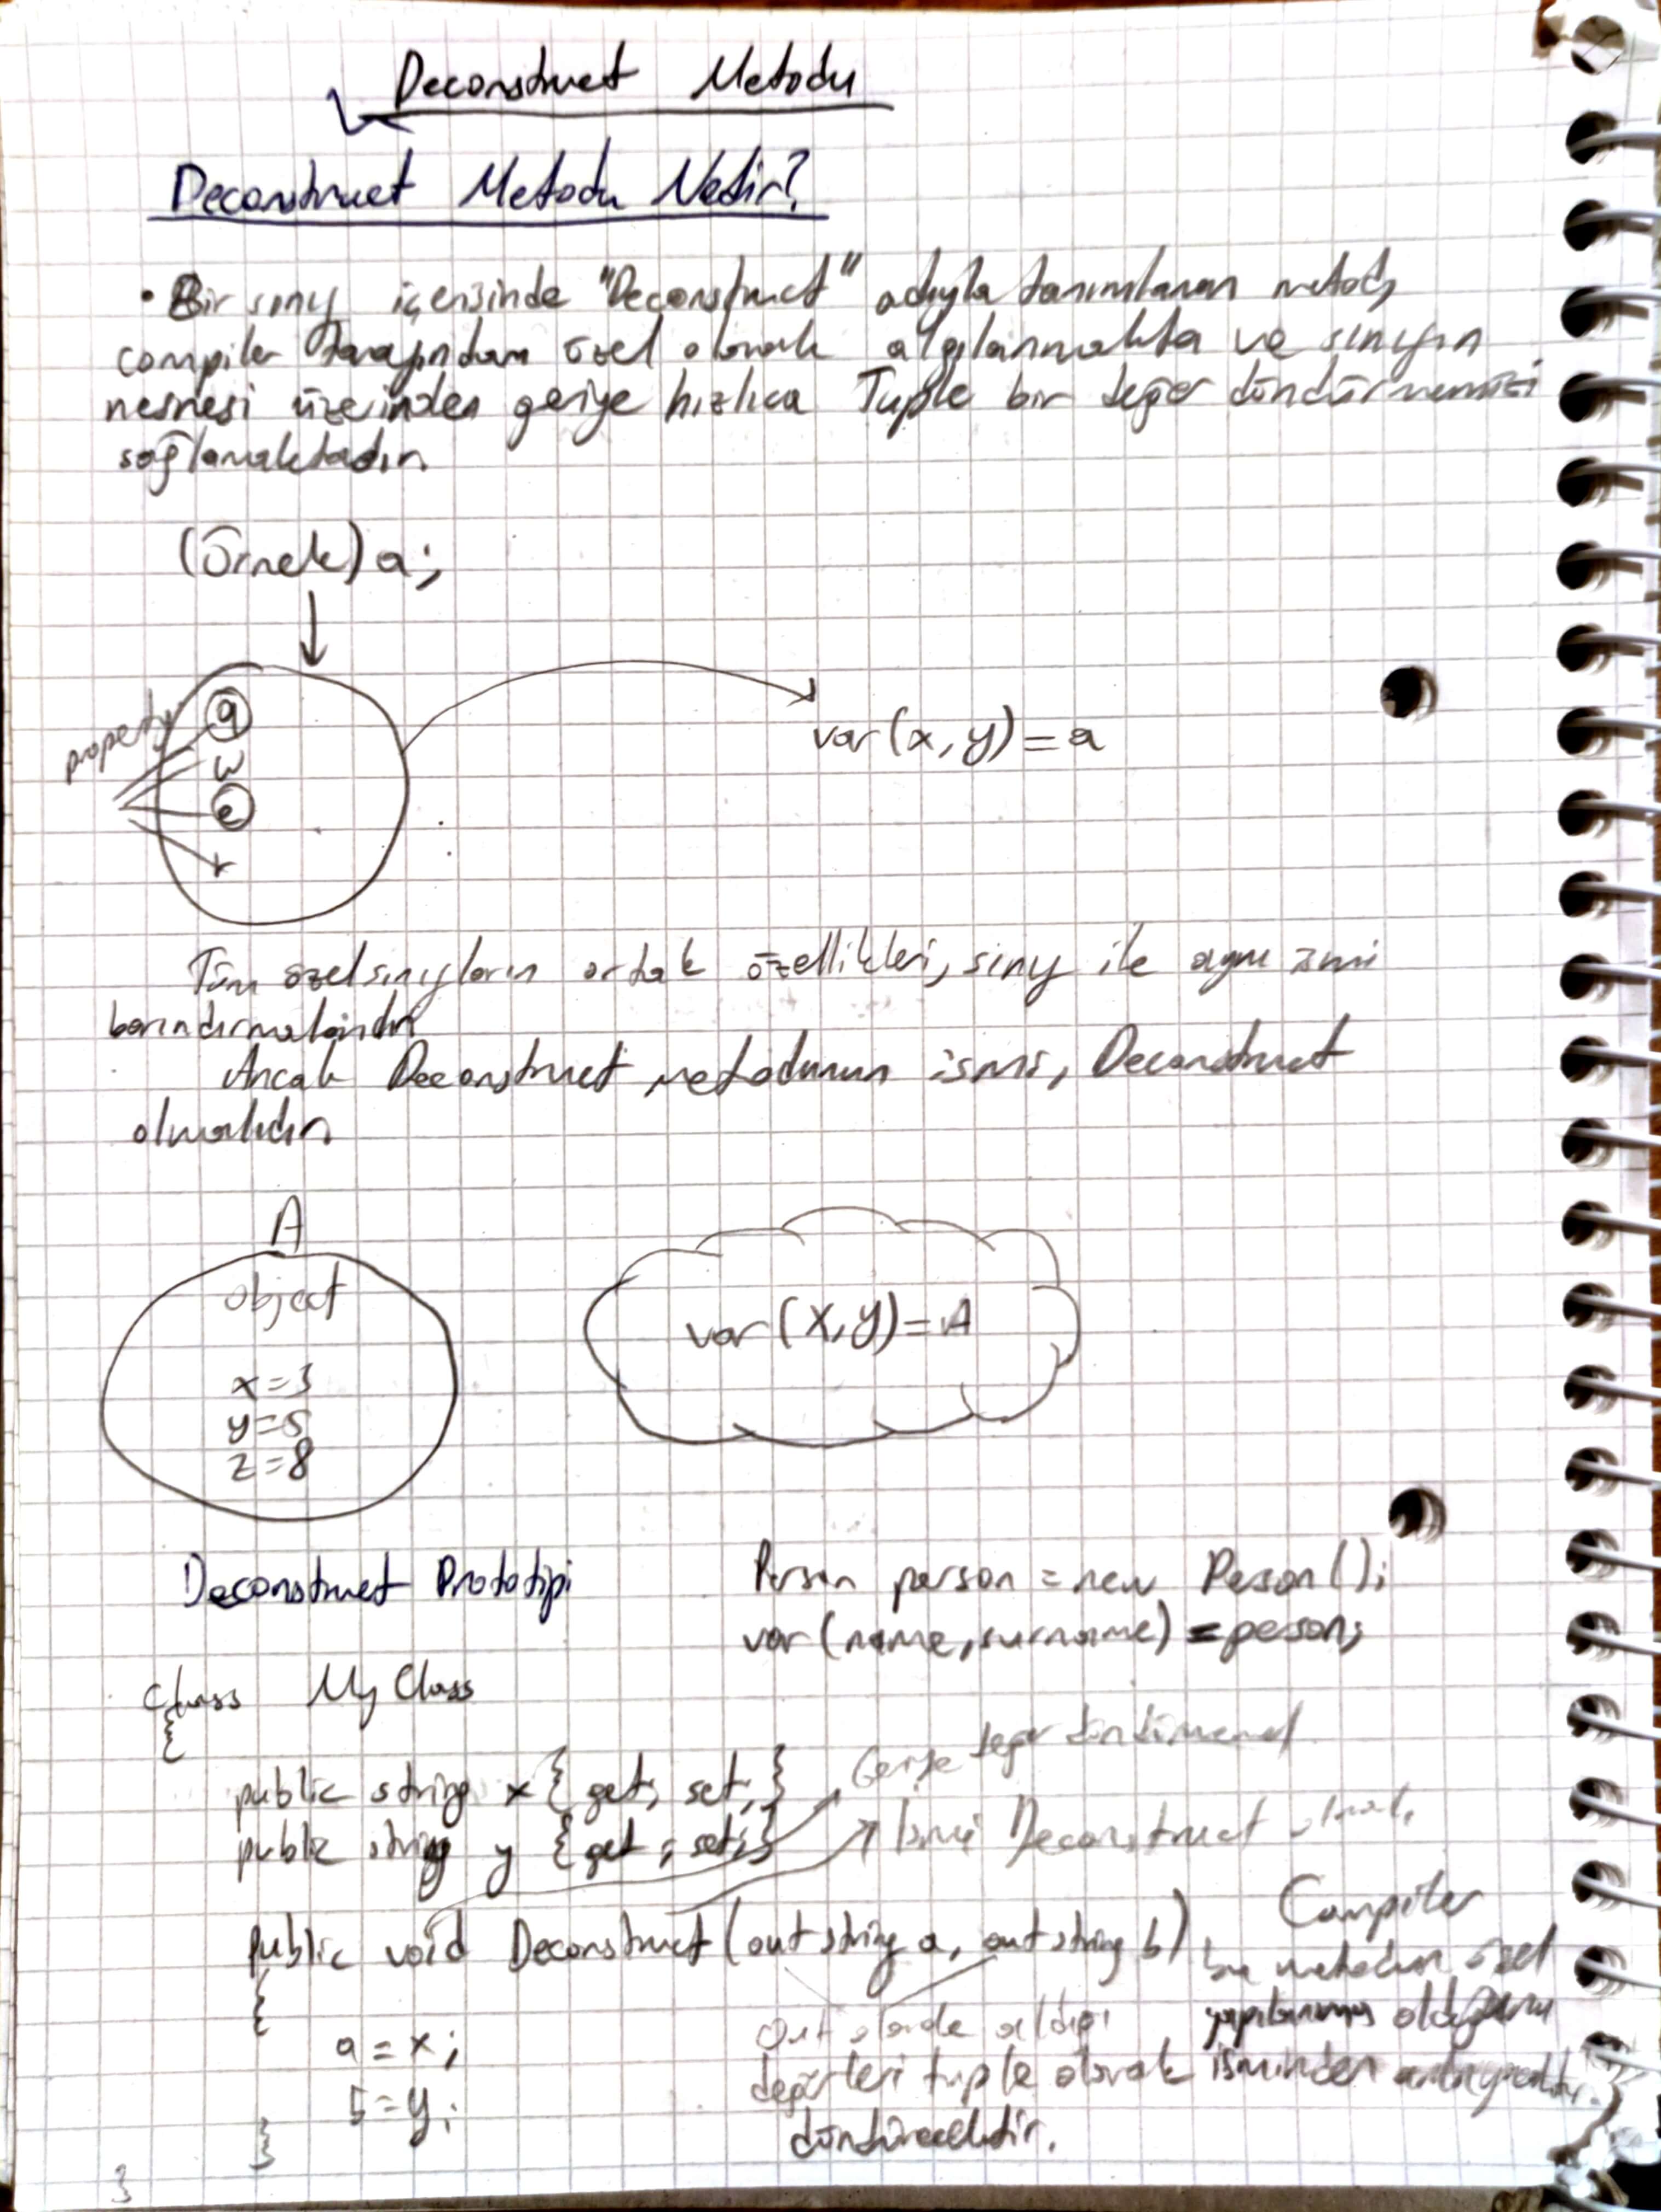 Deconstruct Metodu
Deconstruct Metodu Nedir?
• Bir sınıf içerisinde "Deconstruct" adıyla tanımlanan metot,
compiler tarafından özel olarak algılanmakta ve sınıfın
nesnesi üzerinden geriye hızlıca Tuple bir değer döndürmemizi
sağlamaktadır.
(Örnek) a;
property
q
w
e
r
var (x, y) = a
Tüm özel sınıfların ortak özellikleri, sınıf ile aynı ismi
barındırmalarıdır.
Ancak Deconstruct metodunun ismi, Deconstruct
olmalıdır.
A
object
x=3
y=5
z=8
var (X, y) = A
Deconstruct Prototipi
Person person = new Person();
var (name, surname) = person;
class MyClass
{
public string x { get; set; }
public string y { get; set; }
Geriye değer döndürmez
İsmi Deconstruct
public void Deconstruct (out string a, out string b)
{
a = x;
b = y;
}
}
out olarak aldığı
değerleri tuple olarak
döndürecektir.
Compiler
bu metodun özel
yapılanma olduğunu
isminden